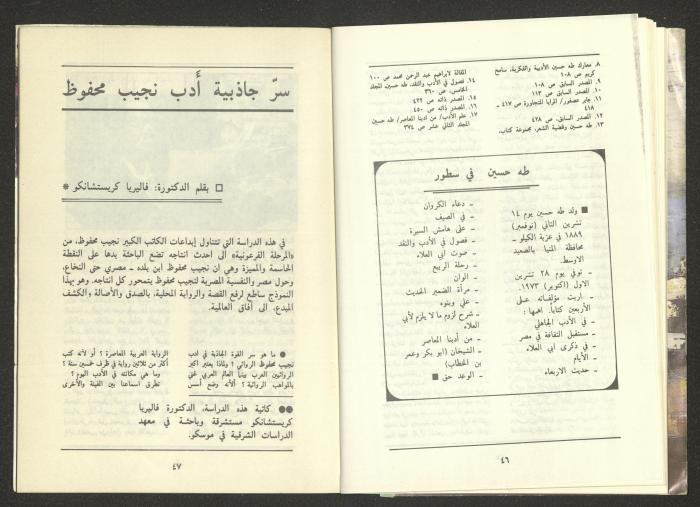 ٨. معارك طه حسين الأدبية والفكرية، سامح
كريم ص ١٠٨
٩. المصدر السابق ص ١٠٨
١٠. المصدر السابق ص ١١٣
١١. جابر عصفور/ المرايا المتجاورة ص ٤١٧ ـ
٤١٨
١٢. المصدر السابق، ص ٤٢٨
١٣. طه حسين وقضية الشعر، مجموعة كتاب،
المقالة لابراهيم عبد الرحمن محمد ص ١٠٠
١٤. فصول في الأدب والنقد، طه حسين المجلد
الخامس، ص ٣٦٠
١٥. المصدر ذاته ص ٤٢٢
١٦. المصدر ذاته ص ٤٥٠
١٧. علم الأدب/ من ادبنا المعاصر/ طه حسين
المجلد الثاني عشر ص ٣٧٤
طه حسين في سطور
■ ولد طه حسين يوم ١٤
تشرين الثاني (نوفمبر)
١٨٨٩ في عزبة الكيلو ـ
محافظة المنيا بالصعيد
الاوسط.
ـ توفي يوم ٢٨ تشرين
الاول (اكتوبر) ١٩٧٣.
ـ اربت مؤلفاته على
الأربعين كتاباً، اهمها:
ـ في الأدب الجاهلي
ـ مستقبل الثقافة في مصر
ـ في ذكرى ابي العلاء
ـ الأيام
ـ حديث الاربعاء
ـ دعاء الكروان
ـ في الصيف
ـ على هامش السيرة
ـ فصول في الأدب والنقد
ـ صوت ابي العلاء
ـ رحلة الربيع
ـ الوان
ـ مرآة الضمير الحديث
ـ علي وبنوه
ـ شرح لزوم ما لا يلزم لأبي
العلاء
ـ من أدبنا المعاصر
ـ الشيخان (ابو بكر وعمر
بن الخطاب)
ـ الوعد حق ■
٤٦
سرّ جاذبية أَدب نجيب محفوظ
□ بقلم الدكتورة: فاليريا كريستشانكو *
في هذه الدراسة التي تتناول إبداعات الكاتب الكبير نجيب محفوظ، من
«المرحلة الفرعونية» الى احدث انتاجه تضع الباحثة يدها على النقطة
الحاسمة والمميزة وهي ان نجيب محفوظ ابن بلده ـ مصري حتى النخاع،
وحول مصر والنفسية المصرية لنجيب محفوظ يتمحور كل انتاجه. وهو بهذا
النموذج ساطع لرفع القصة والرواية المحلية، بالصدق والأصالة والكشف
المبدع، الى أفاق العالمية.
● ما هو سر القوة الجاذبة في أدب
نجيب محفوظ الروائي؟ ولماذا يعتبر اكبر
الروائيين العرب بينا العالم العربي غني
بالمواهب الروائية؟ ألانه وضع أسس
الرواية العربية المعاصرة؟ أو لأنه كتب
أكثر من ثلاثين رواية في ظرف خمسين سنة؟
وما هي مكانته في الأدب اليوم؟
تطرق اسماعنا بين الفينة والأخرى
●● كاتبة هذه الدراسة، الدكتورة فاليريا
كريستشانكو مستشرقة وباحثة في معهد
الدراسات الشرقية في موسكو.
٤٧